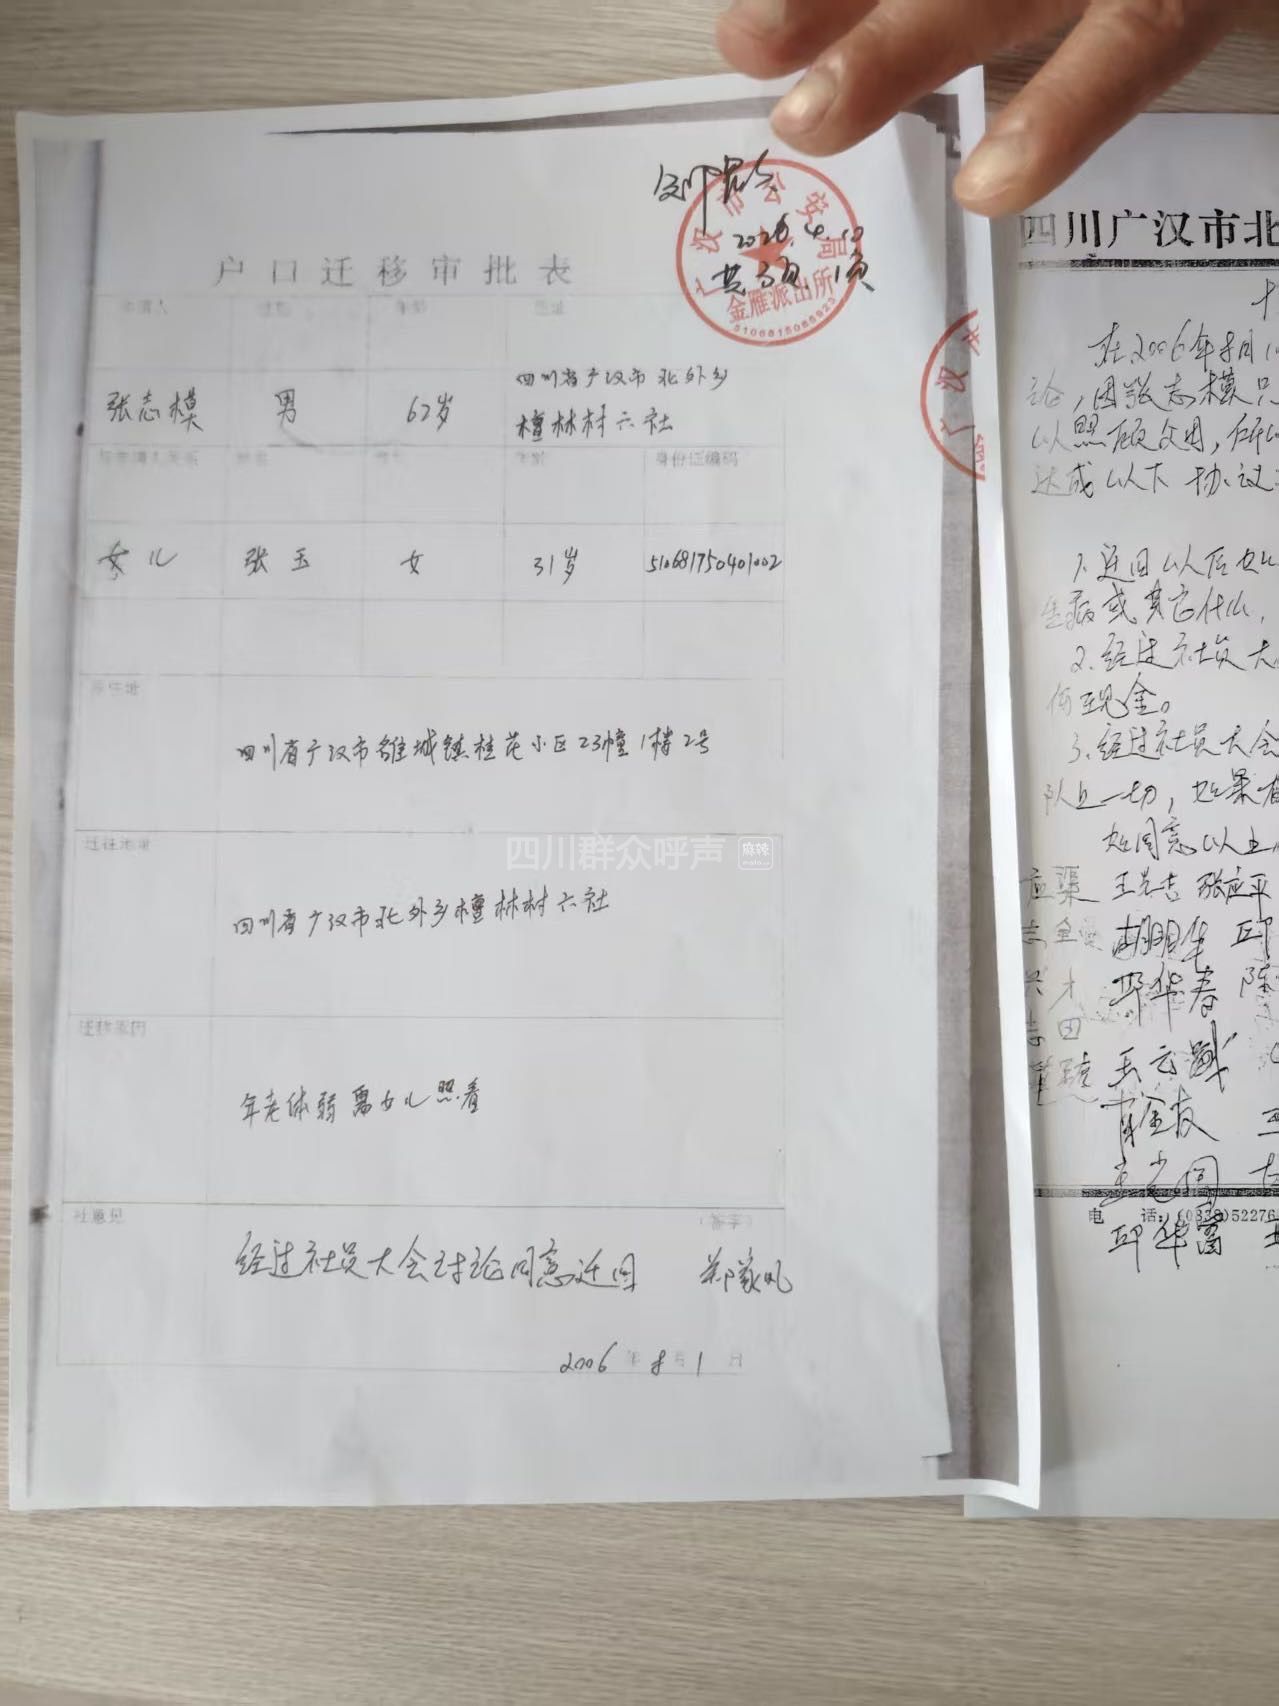 2026.4.10
共3页.1页
广汉市公安局
金雁派出所
5106815065923
户口迁移审批表
申请人 性别 年龄 住址
张志模 男 62岁 四川省广汉市北外乡
檀林村六社
与申请人关系 姓名 性别 年龄 身份证编码
女儿 张玉 女 31岁 510681750401002
原住址
四川省广汉市雒城镇桂花小区23幢1楼2号
迁往地址
四川群众呼声 麻辣
四川省广汉市北外乡檀林村六社
迁移原因
年老体弱需女儿照看
社意见 (签字)
经过社员大会讨论同意迁回 郑家凤
2006年8月1日
广汉
四川广汉市北
在2006年8月1
论,因张志模只
以照顾父母,所以
达成以下协议
1.迁回以后
生病或其它什么,
2.经过社员大
何现金。
3.经过社员大会
队上一切,如果
如同意以上
王光吉 张应平
胡明华 邱
邓华春 陈
肖金友 王
王光国
电 话:(0838)52276
邱华富